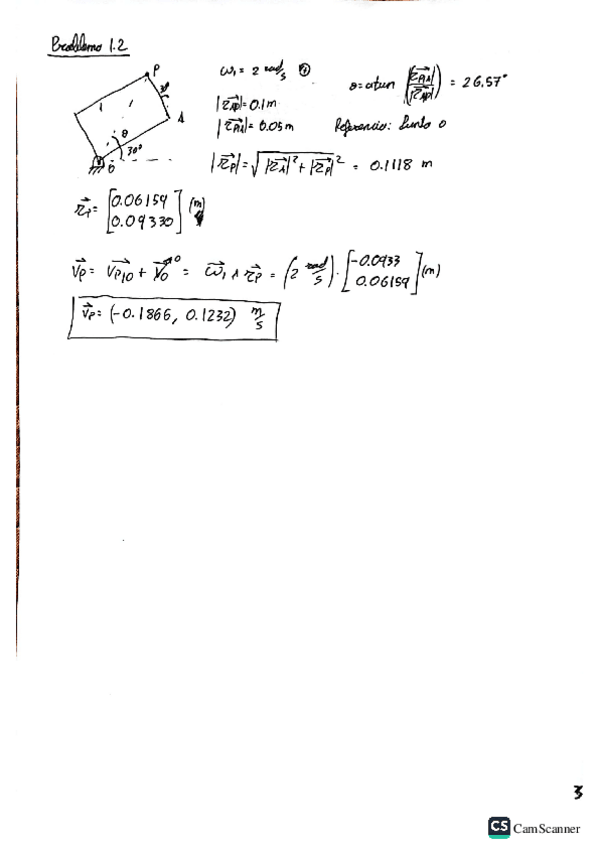 Problema 1.2
ω₁ = 2 rad/s
θ = atan (|r⃗PA| / |r⃗AP|) = 26.57°
|r⃗AO| = 0.1 m
|r⃗PA| = 0.05 m Referencia: Punto O
|r⃗P| = √(|r⃗A|² + |r⃗P|²) = 0.1118 m
P
1
30°
A
θ
30°
O
r⃗P = [0.06159 0.09330] (m)
v⃗P = v⃗P/O + v⃗O⁰ = ω⃗₁ ∧ r⃗P = (2 rad/s) · [-0.0933 0.06159] (m)
v⃗P = (-0.1866, 0.1232) m/s
3
CS CamScanner